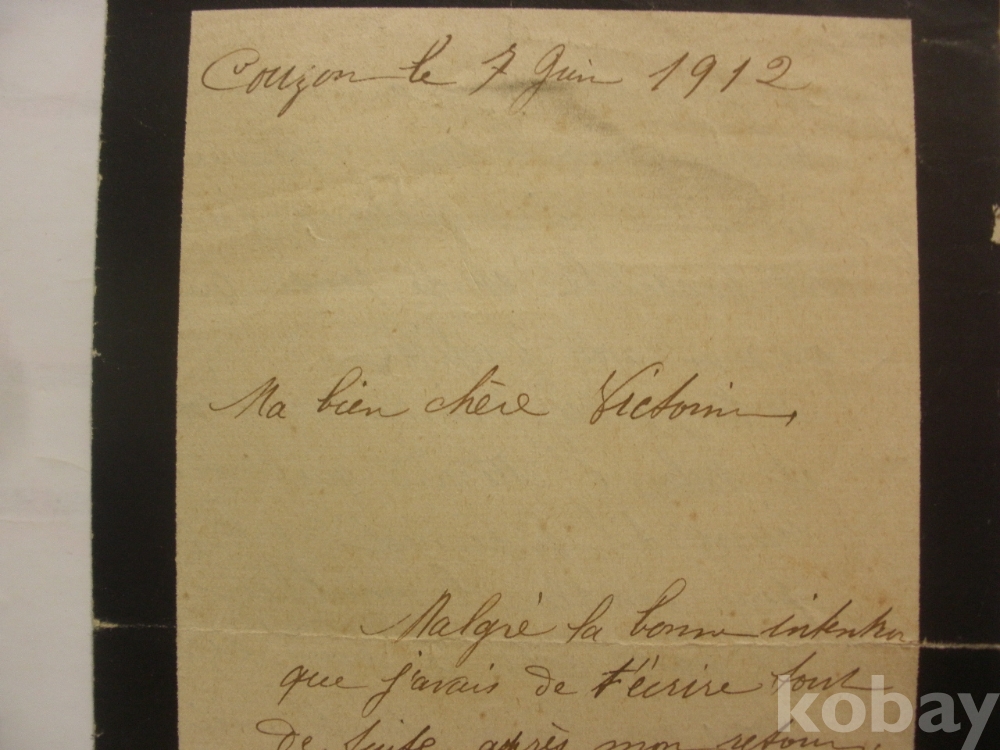 Couzon le 7 Juin 1912
Ma bien chère Victorine,
Malgré la bonne intention
que j'avais de t'écrire tout
de suite après mon retour
kobay